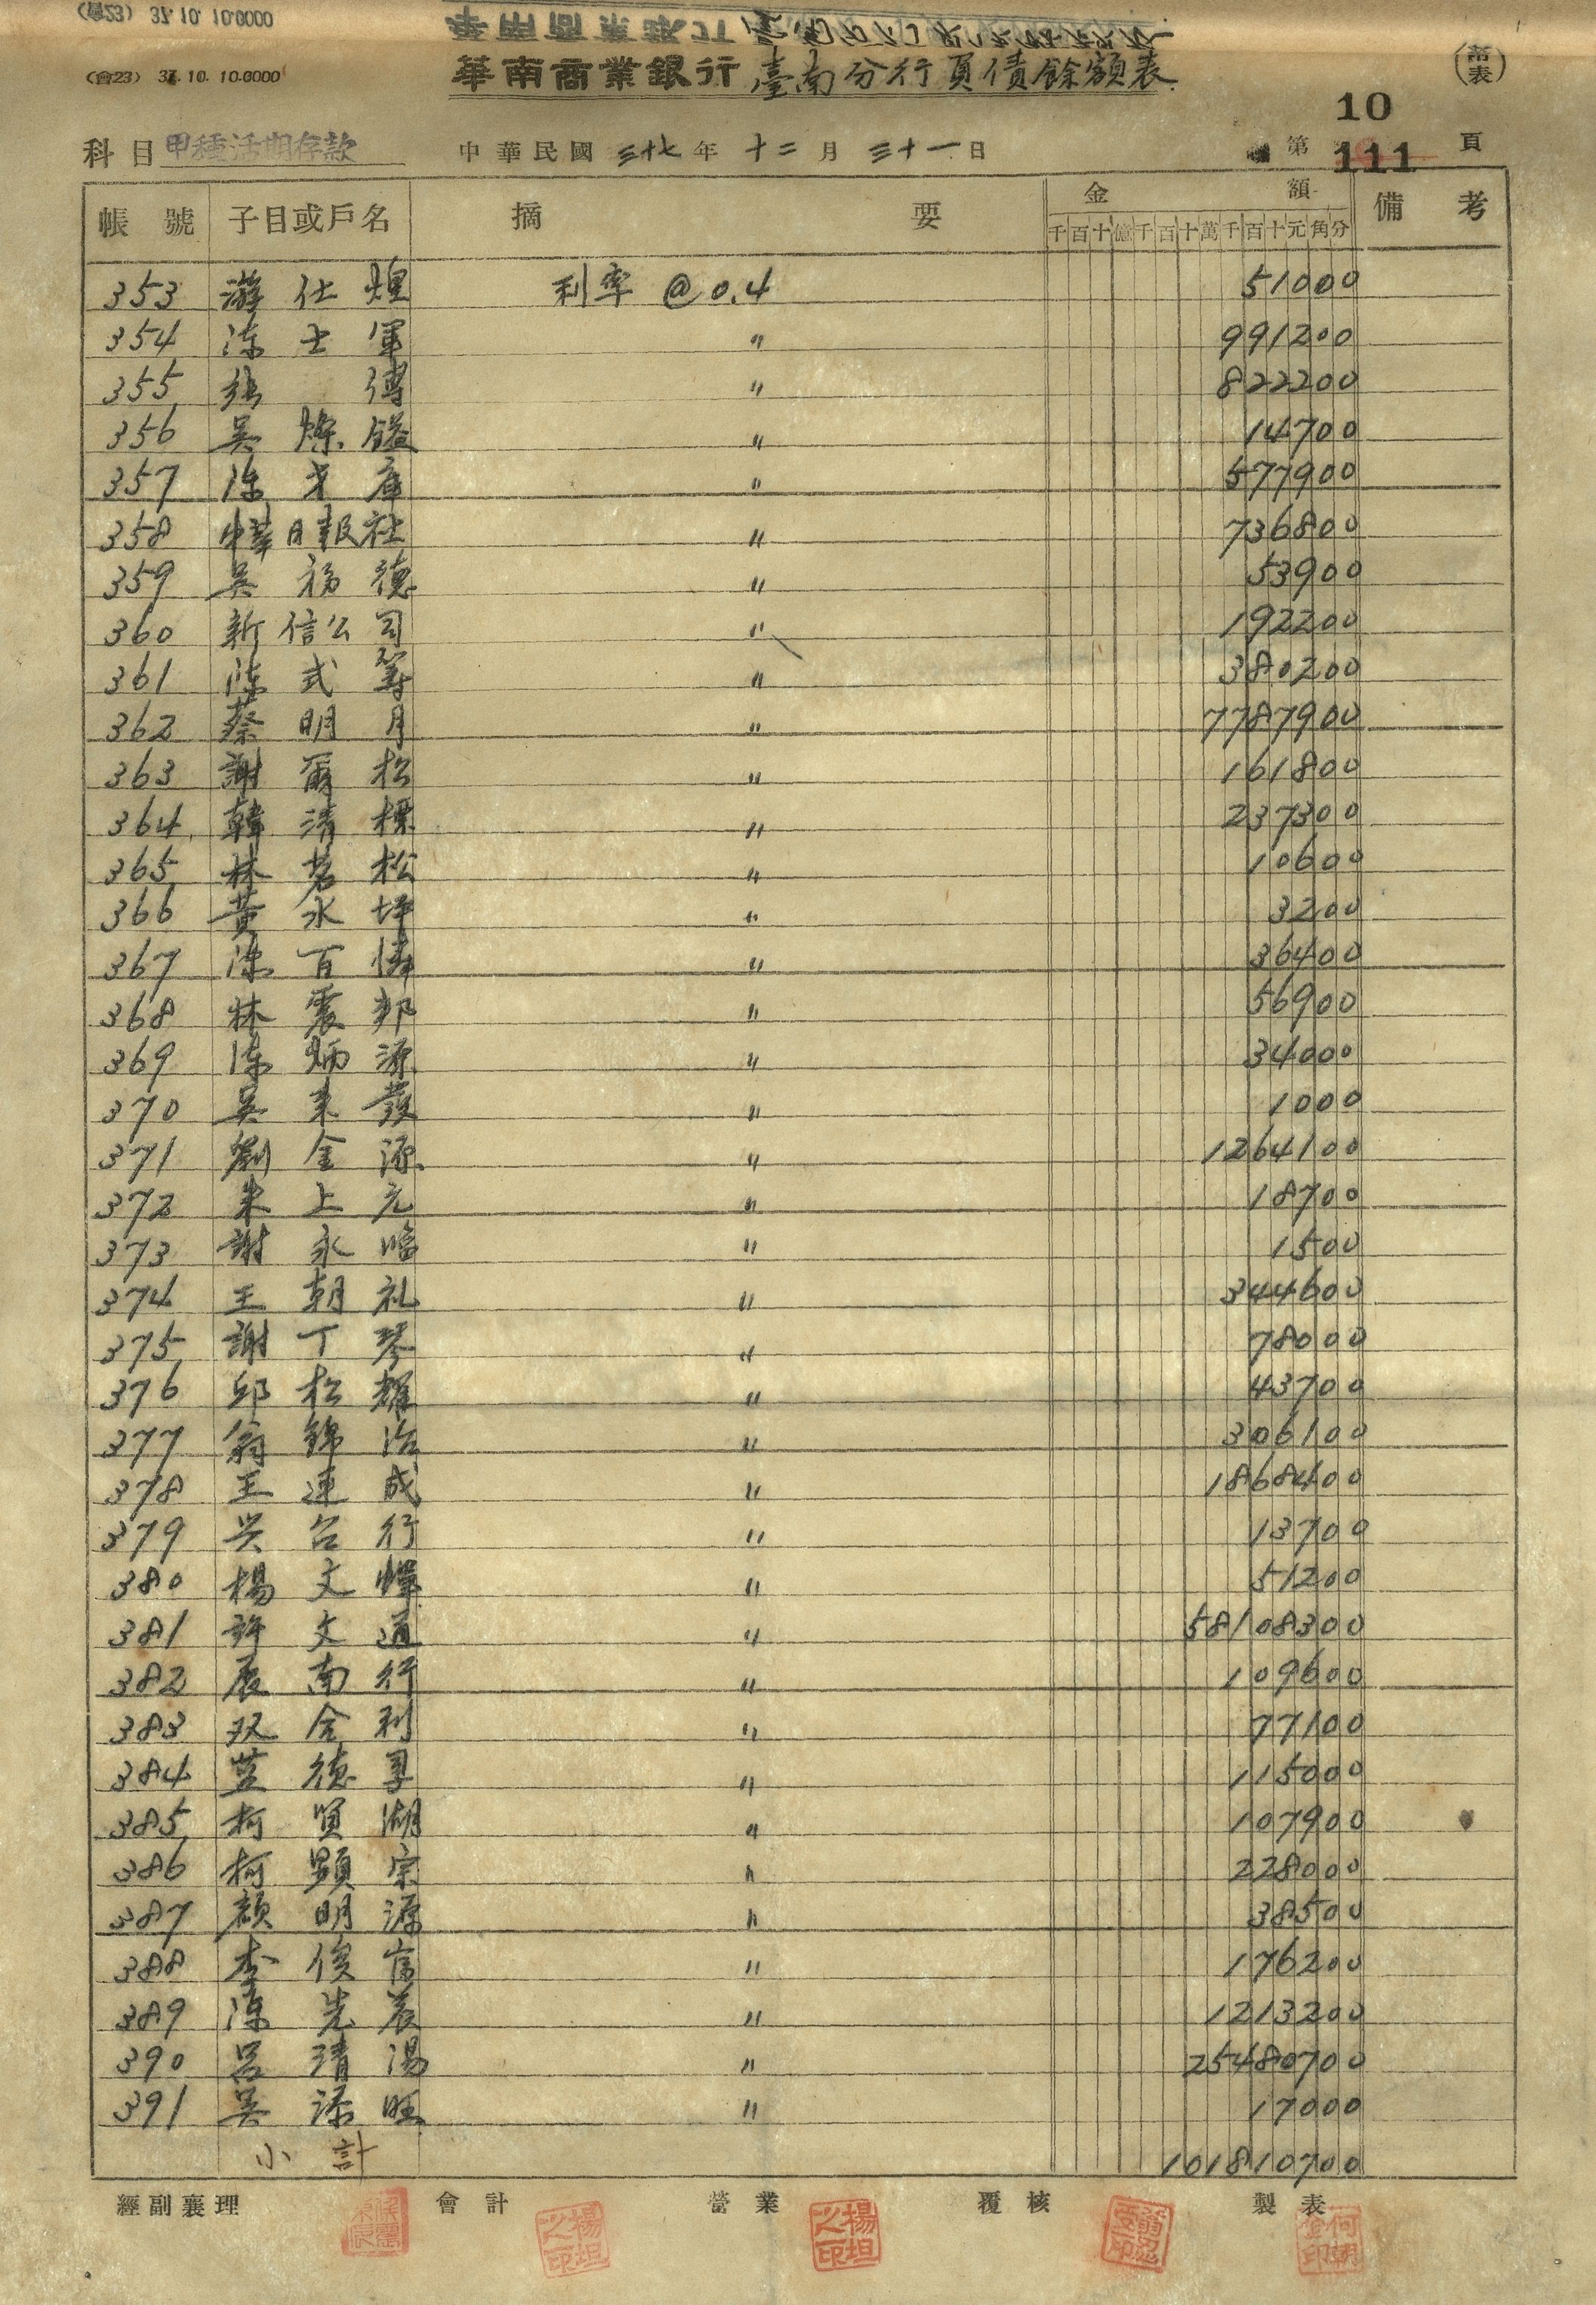 (會23) 37.10.10.0000
(會23) 37.10.10.0000 華南商業銀行臺南分行負債餘額表
10
科目 甲種活期存款 中華民國 三十七 年 十二 月 三十一 日 第 111 頁
帳號 子目或戶名 摘要 金額 備考
千百十億千百十萬千百十元角分
353 游仕煌 利率 @0.4 51000
354 陳士軍 〃 991200
355 張傅 〃 822200
356 吳燦鎰 〃 14700
357 陳才庫 〃 577900
358 中華日報社 〃 736800
359 吳福德 〃 53900
360 新信公司 〃 192200
361 陳式等 〃 380200
362 蔡明月 〃 7787900
363 謝爾松 〃 161800
364 韓清標 〃 237300
365 林茗松 〃 10600
366 黃永坪 〃 3200
367 陳百憐 〃 36400
368 林震邦 〃 56900
369 陳炳源 〃 34000
370 吳來發 〃 1000
371 劉金源 〃 1264100
372 朱上元 〃 18700
373 謝永臨 〃 1500
374 王朝礼 〃 344600
375 謝丁琴 〃 78000
376 邱松輝 〃 43700
377 翁錦治 〃 306100
378 王連成 〃 1868400
379 兴台行 〃 13700
380 楊文燦 〃 51200
381 許文通 〃 58108300
382 展南行 〃 109600
383 双金利 〃 77100
384 德 〃 115000
385 柯賢湖 〃 107900
386 柯顕宗 〃 228000
387 顏明源 〃 38500
388 李俊 〃 176200
389 陳先 〃 1213200
390 呂清湯 〃 25480700
391 吳添旺 〃 17000
小計 101810700
經副襄理 會計 營業 覆核 製表
楊坦之印 楊坦之印